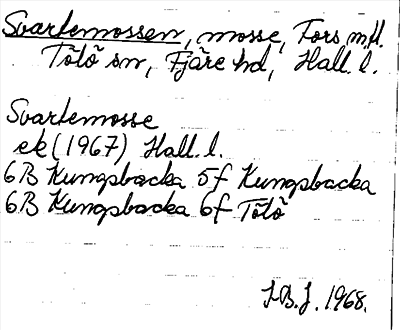 Svartemossen, mosse, Fors m.fl.
Tölö sn, Fjäre hd, Hall. l.
Svartemosse
ek (1967) Hall. l.
6B Kungsbacka 5f Kungsbacka
6B Kungsbacka 6f Tölö
J.B.J. 1968.